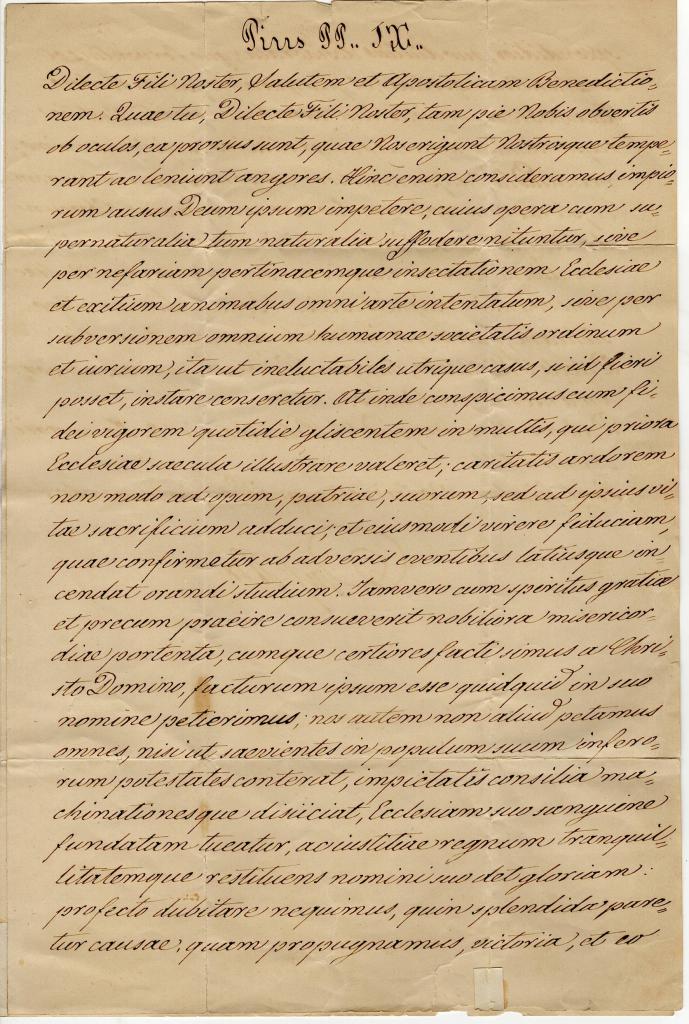 Pius PP. IX.
Dilecte Fili Noster, Salutem et Apostolicam Benedictio-
nem. Quae tu, Dilecte Fili Noster, tam pie Nobis obvertis
ob oculos, ea prorsus sunt, quae Nos erigunt Nostrosque tempe-
rant ac leniunt angores. Hinc enim consideramus impio-
rum ausus Deum ipsum impetere, cuius opera cum su-
pernaturalia tum naturalia suffodere nituntur, sive
per nefariam pertinacemque insectationem Ecclesiae
et exitium animabus omni arte intentatum, sive per
subversionem omnium humanae societatis ordinum
et iurium, ita ut ineluctabiles utrique casus, si id fieri
posset, instare censeretur. At inde conspicimus cum fi-
dei vigorem quotidie gliscentem in multis, qui priora
Ecclesiae saecula illustrare valeret; caritatis ardorem
non modo ad opum, patriae, suorum, sed ad ipsius vi-
tae sacrificium adduci; et eiusmodi virere fiduciam,
quae confirmetur ab adversis eventibus latiusque in-
cendat orandi studium. Iamvero cum spiritus gratiae
et precum praeire consueverit nobiliora misericor-
diae portenta, cumque certiores facti simus a Chri-
sto Domino, facturum ipsum esse quidquid in suo
nomine petierimus; nos autem non aliud petamus
omnes, nisi ut saevientes in populum suum infero-
rum potestates conterat, impietatis consilia ma-
chinationesque disiiciat, Ecclesiam suo sanguine
fundatam tueatur, ac iustitiae regnum tranquil-
litatemque restituens nomini suo det gloriam:
profecto dubitare nequimus, quin splendida pare-
tur causae, quam propugnamus, victoria, et eo